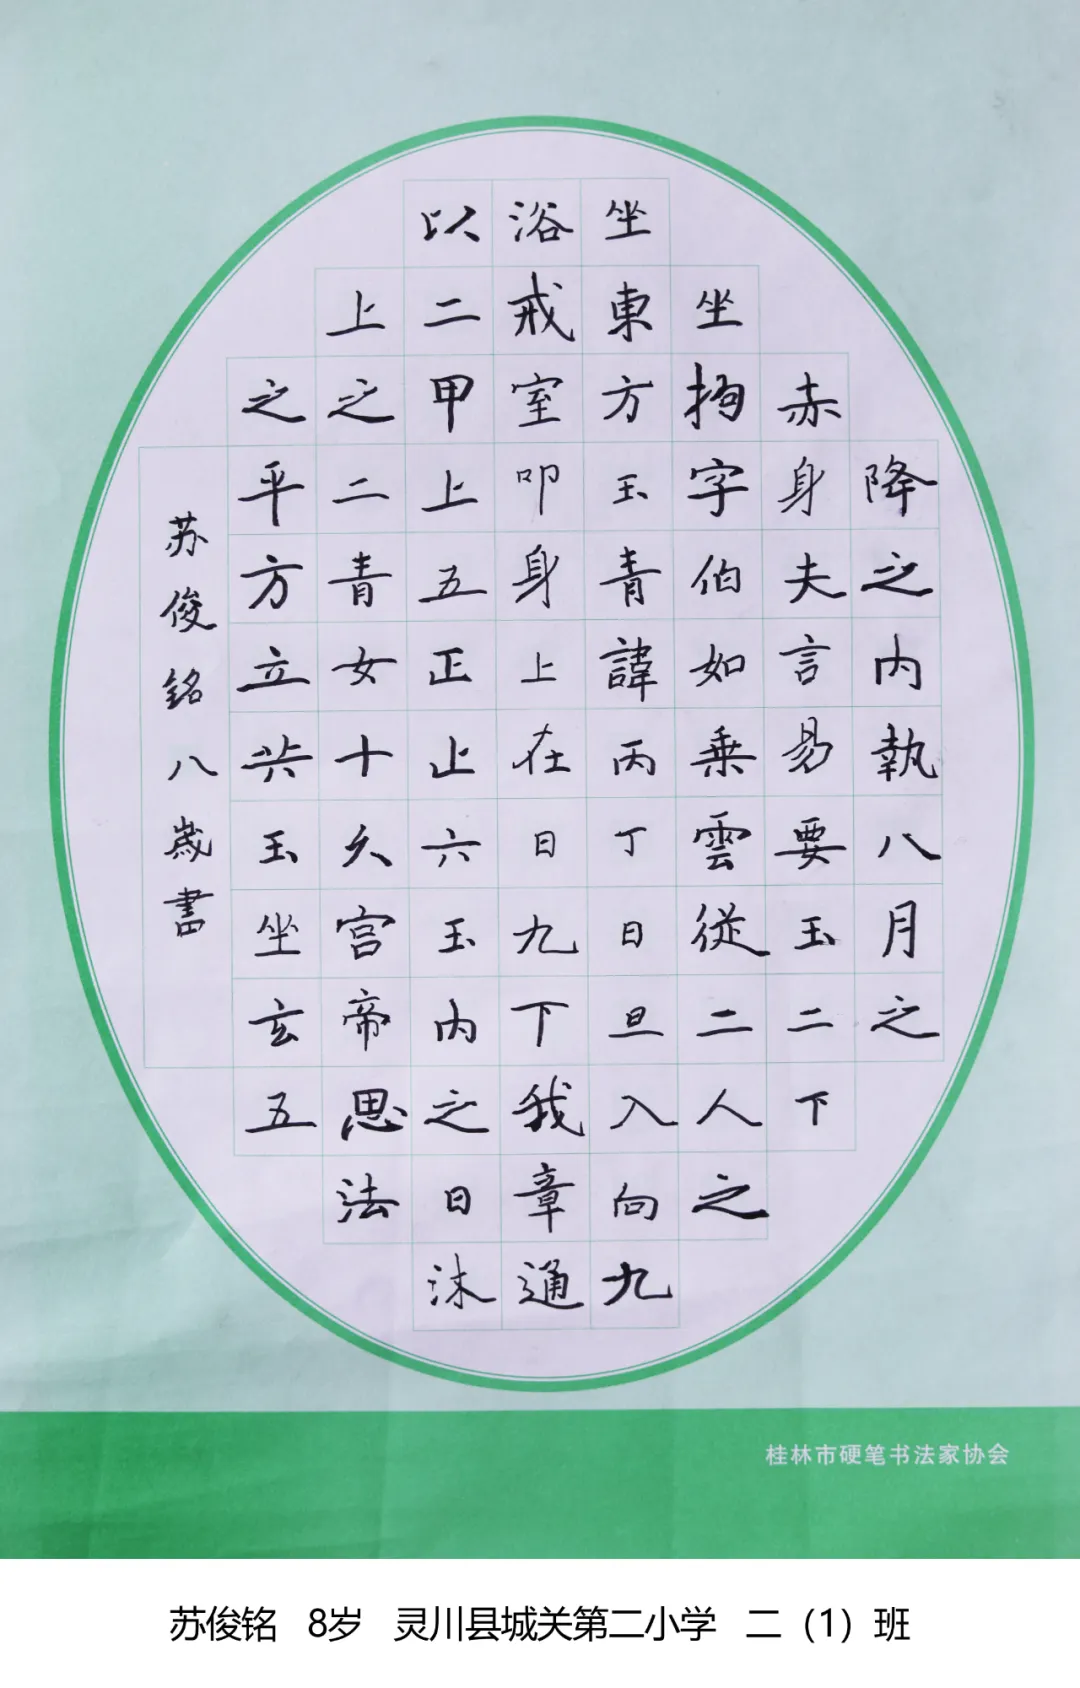 降之内執八月之
赤身夫言易要玉二下
坐拘字伯如乗雲従二人之
坐東方玉青諱丙丁日旦入向九
浴戒室叩身上在日九下我章通
以二甲上五正止六玉内之日沐
上之二青女十久宫帝思法
之平方立共玉坐玄五
苏俊铭八歲書
桂林市硬笔书法家协会
苏俊铭 8岁 灵川县城关第二小学 二（1）班